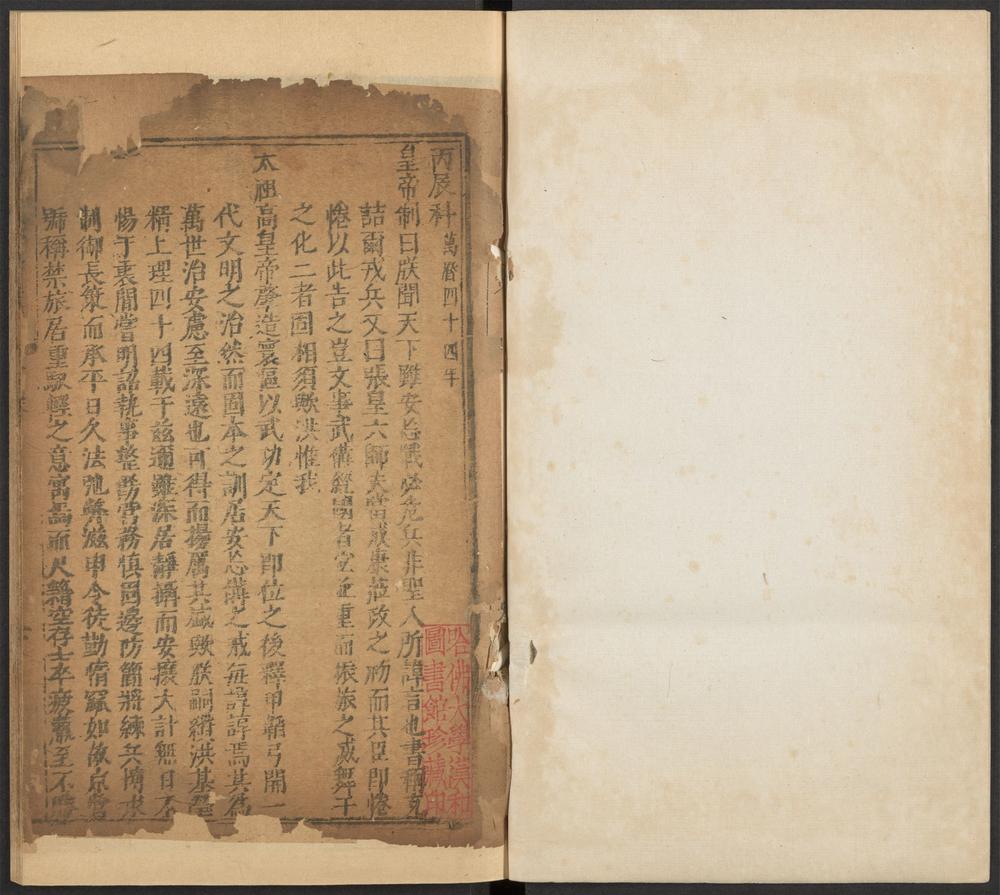 丙辰科萬曆四十四年
皇帝制曰朕聞天下雖安忘戰必危兵非聖人所諱言也書稱克
詰爾戎兵又曰張皇六師夫當成康蒞政之初而其臣即惓
惓以此告之豈文事武備經國者宜並重而振旅之威舞干
之化二者固相須歟洪惟我
太祖高皇帝肇造寰區以武功定天下即位之後櫜甲韜弓開一
代文明之治然而固本之訓居安忘備之戒每諄諄焉其為
萬世治安慮至深遠也可得而揚厲其盛歟朕嗣纘洪基
精上理四十四載于茲邇雖深居靜攝而安攘大計無日不
惕于衷間嘗明詔執事整飭營務慎固邊防簡將練兵博求
制御長策而承平日久法弛弊滋申令徒勤惰窳如故京營
號稱禁旅居重馭輕之意寓焉而尺籍空存士卒疲羸至不
哈佛大學漢和
圖書館珍藏印